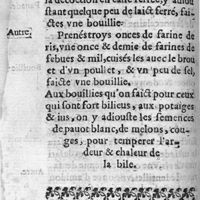 la decoction en ladite terre, y adiou
stant quelque peu de laict ferré, fai-
ctes vne bouillie.
Autre. Prenés troys onces de farine de
ris, vne once & demie de farines de
febues & mil, cuisés les auec le brou
et d'vn poullet, & vn peu de sel,
faicte vne bouillie.
Aux bouillies qu'on faict pour ceux
qui sont fort bilieus, aux potaiges
& ius, on y adiouste les semences
de pauot blanc, de melons, cou-
ges, pour temperer l'ar
deur & chaleur de
la bile.